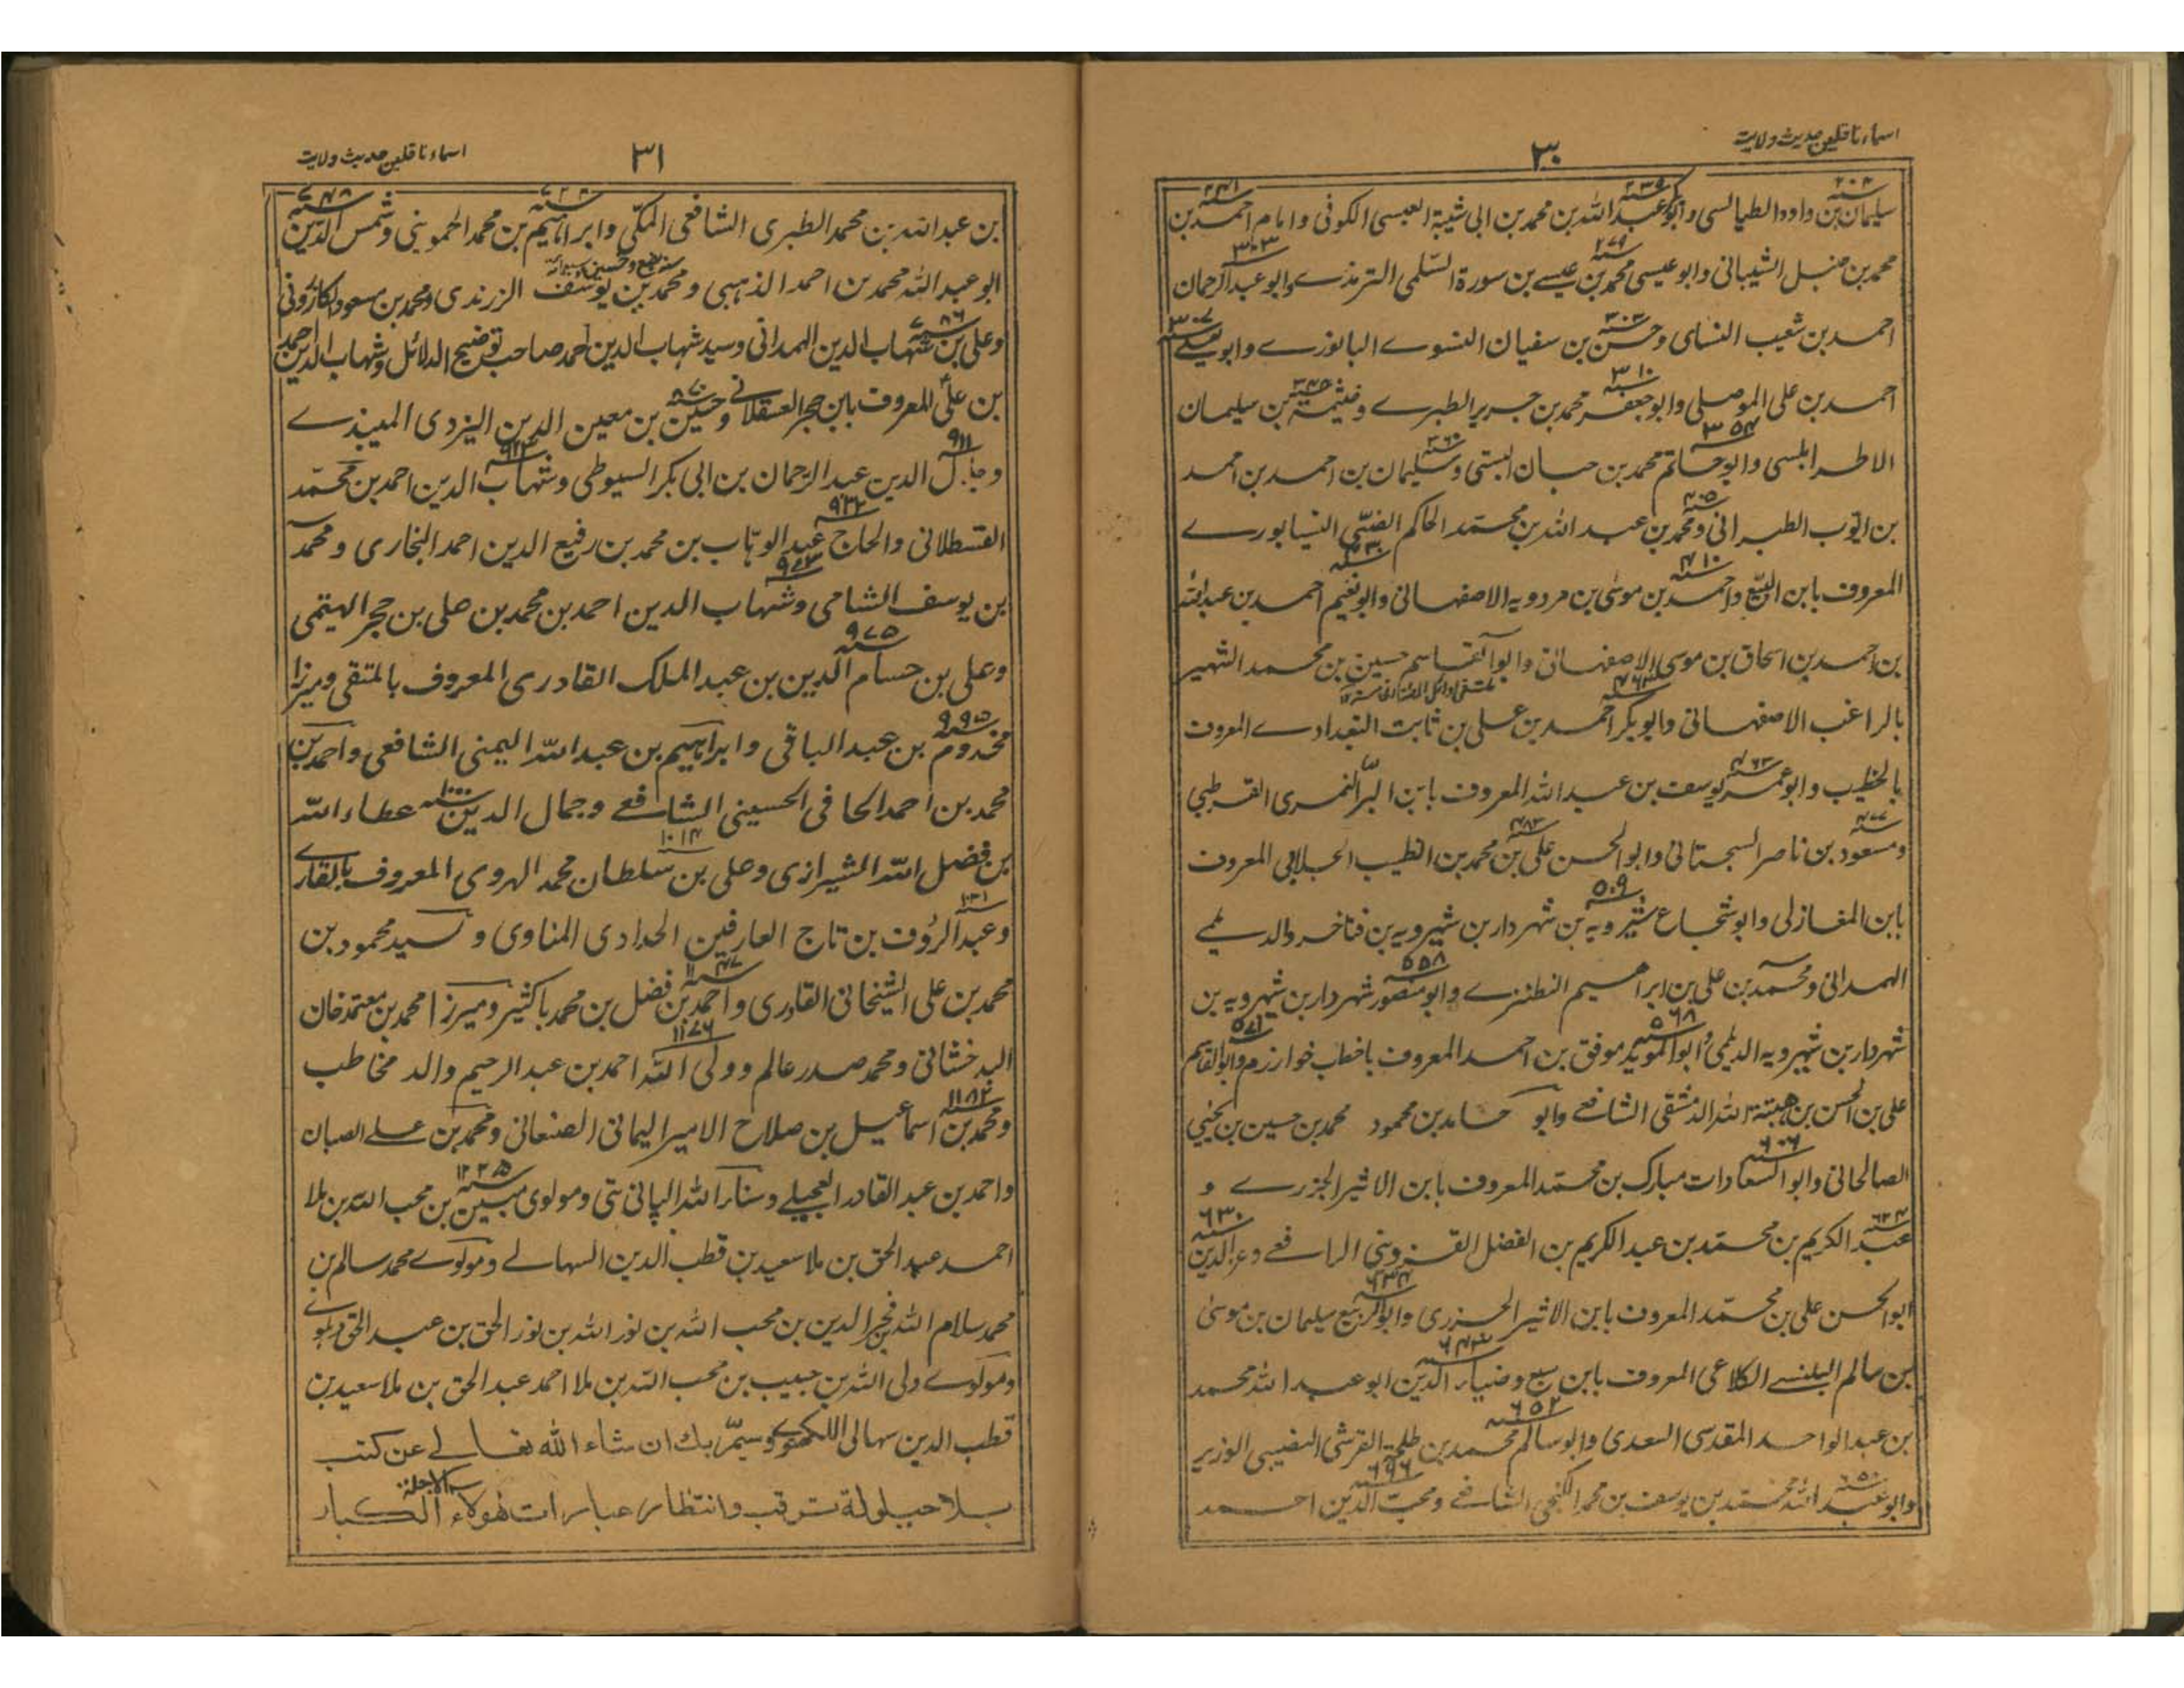 اسماء ناقلین حدیث ولایت
٣٠
٢٠٤ ٢٣٥ ٢٤١
سلیمان بن داود الطیالسی و ابوبکر عبد الله بن محمد بن ابی شیبة العبسی الکوفی و امام احمد بن
٢٧٩ ٣٠٣
محمد بن حنبل الشیبانی وابو عیسی محمد بن عیسے بن سورة السّلمی الترمذے وابو عبد الرحمان
٣٠٣ ٣٠٧
احمد بن شعیب النسای وحسن بن سفیان النسوے البالوزے وابو یعلے
٣١٠
احمد بن علی الموصلی وابو جعفر محمد بن جریر الطبرے وخیثمة بن سلیمان
٣٥٤ ٣٦٠
الاطرابلسی وابو حاتم محمد بن حبان البستی وسلیمان بن احمد بن احمد
٤٠٥
بن ایوب الطبرانی ومحمد بن عبد الله بن محمد الحاکم الضبّی النیسابورے
٤١٠ ٤٣٠
المعروف بابن البیّع واحمد بن موسیٰ بن مردویه الاصفهانی وابو نعیم احمد بن عبد الله
بن احمد بن اسحاق بن موسی الاصفهانی وابو القاسم حسین بن محمد الشهیر
٤٦٣
بالراغب الاصفهانی وابو بکر احمد بن علی بن ثابت البغدادے المعروف
٤٦٣
بالخطیب وابو عمر یوسف بن عبد الله المعروف بابن البرّ النمری القرطبی
٤٧٧ ٤٨٣
ومسعود بن ناصر السجستانی وابو الحسن علی بن محمد بن الطیب الجلابی المعروف
٥٠٩
بابن المغازلی وابو شجاع شیرویه بن شهردار بن شیرویه بن فناخسرو الدیلمے
٥٥٨
الهمدانی ومحمد بن علی بن ابراهیم النطنزے وابو منصور شهردار بن شیرویه بن
٥٦٨ ٥٧١
شهردار بن شیرویه الدیلمی وابو الموید موفق بن احمد المعروف باخطب خوارزم وابو القاسم
علی بن الحسن بن هبتة الله الدمشقی الشافعے وابو حامد بن محمود محمد بن حسین بن یحیی
٦٠٦
الصالحانی وابو السعادات مبارک بن محمد المعروف بابن الاثیر الجزرے و
٦٢٤ ٦٣٠
عبد الکریم بن محمد بن عبد الکریم بن الفضل القزوینی الرافعے وعز الدین
٦٣٤
ابو الحسن علی بن محمد المعروف بابن الاثیر الجزری وابو الربیع سلیمان بن موسیٰ
٦٤٣
بن سالم البلنسے الکلاعی المعروف بابن سبع وضیاء الدین ابو عبد الله محمد
٦٥٢
بن عبد الواحد المقدسی السعدی وابو سالم محمد بن طلحة القرشی النصیبی الوزیر
٦٥٠ ٦٩٦
وابو عبد الله محمد بن یوسف بن محمد الکنجی الشافعے ومحب الدین احمد
اسماء ناقلین حدیث ولایت
٣١
٧٤٨
بن عبد الله بن محمد الطبری الشافعی المکّی وابراهیم بن محمد الحموینی وشمس الدین
ابو عبد الله محمد بن احمد الذهبی ومحمد بن یوسف الزرندی ومحمد بن مسعود الکازرونی
٧٨٦
وعلی بن شهاب الدین الهمدانی وسید شهاب الدین احمد صاحب توضیح الدلائل وشهاب الدین احمد
٨٧٠
بن علی المعروف بابن حجر العسقلانے وحسین بن معین الدین الیزدی المیبذے
٩١١ ٩٢٣
وجلال الدین عبد الرحمان بن ابی بکر السیوطی وشهاب الدین احمد بن محمّد
٩٣٢
القسطلانی والحاج عبد الوهّاب بن محمد بن رفیع الدین احمد البخاری ومحمد
٩٧٣
بن یوسف الشامی وشهاب الدین احمد بن محمد بن علی بن حجر الهیتمی
٩٧٥
وعلی بن حسام الدین بن عبد الملک القادری المعروف بالمتقی ومیرزا
٩٩٥
مخدوم بن عبد الباقی وابراهیم بن عبد الله الیمنی الشافعی واحمد بن
١٠٠٠
محمد بن احمد الحافی الحسینی الشافعے وجمال الدین عطاء الله
١٠١٤
بن فضل الله الشیرازی وعلی بن سلطان محمد الهروی المعروف بالقارے
١٠٣١
وعبد الرؤف بن تاج العارفین الحدادی المناوی و سید محمود بن
١٠٤٧
محمد بن علی الشیخانی القادری واحمد بن فضل بن محمد باکثیر ومیرزا محمد بن معتمد خان
١١٧٦
البدخشانی ومحمد صدر عالم وولی الله احمد بن عبد الرحیم والد مخاطب
١١٨٢
ومحمد بن اسماعیل بن صلاح الامیر الیمانی الصنعانی ومحمد بن علے الصبان
١٢٢٥
واحمد بن عبد القادر العجیلے وسناء الله الپانی پتی ومولوی مبین بن محب الله بن ملا
احمد عبد الحق بن ملا سعید بن قطب الدین السهالے ومولوے محمد سالم بن
محمد سلام الله فخر الدین بن محب الله بن نور الله بن نور الحق بن عبد الحق دهلوے
ومولوے ولی الله بن حبیب بن محب الله بن ملا احمد عبد الحق بن ملا سعید بن
قطب الدین سهالی اللکهنوے وسیمّر بك ان شاء الله تعالے عن کتب
بلا حیلولة ترقب وانتظار عبارات هولاء الکبار الاجلة